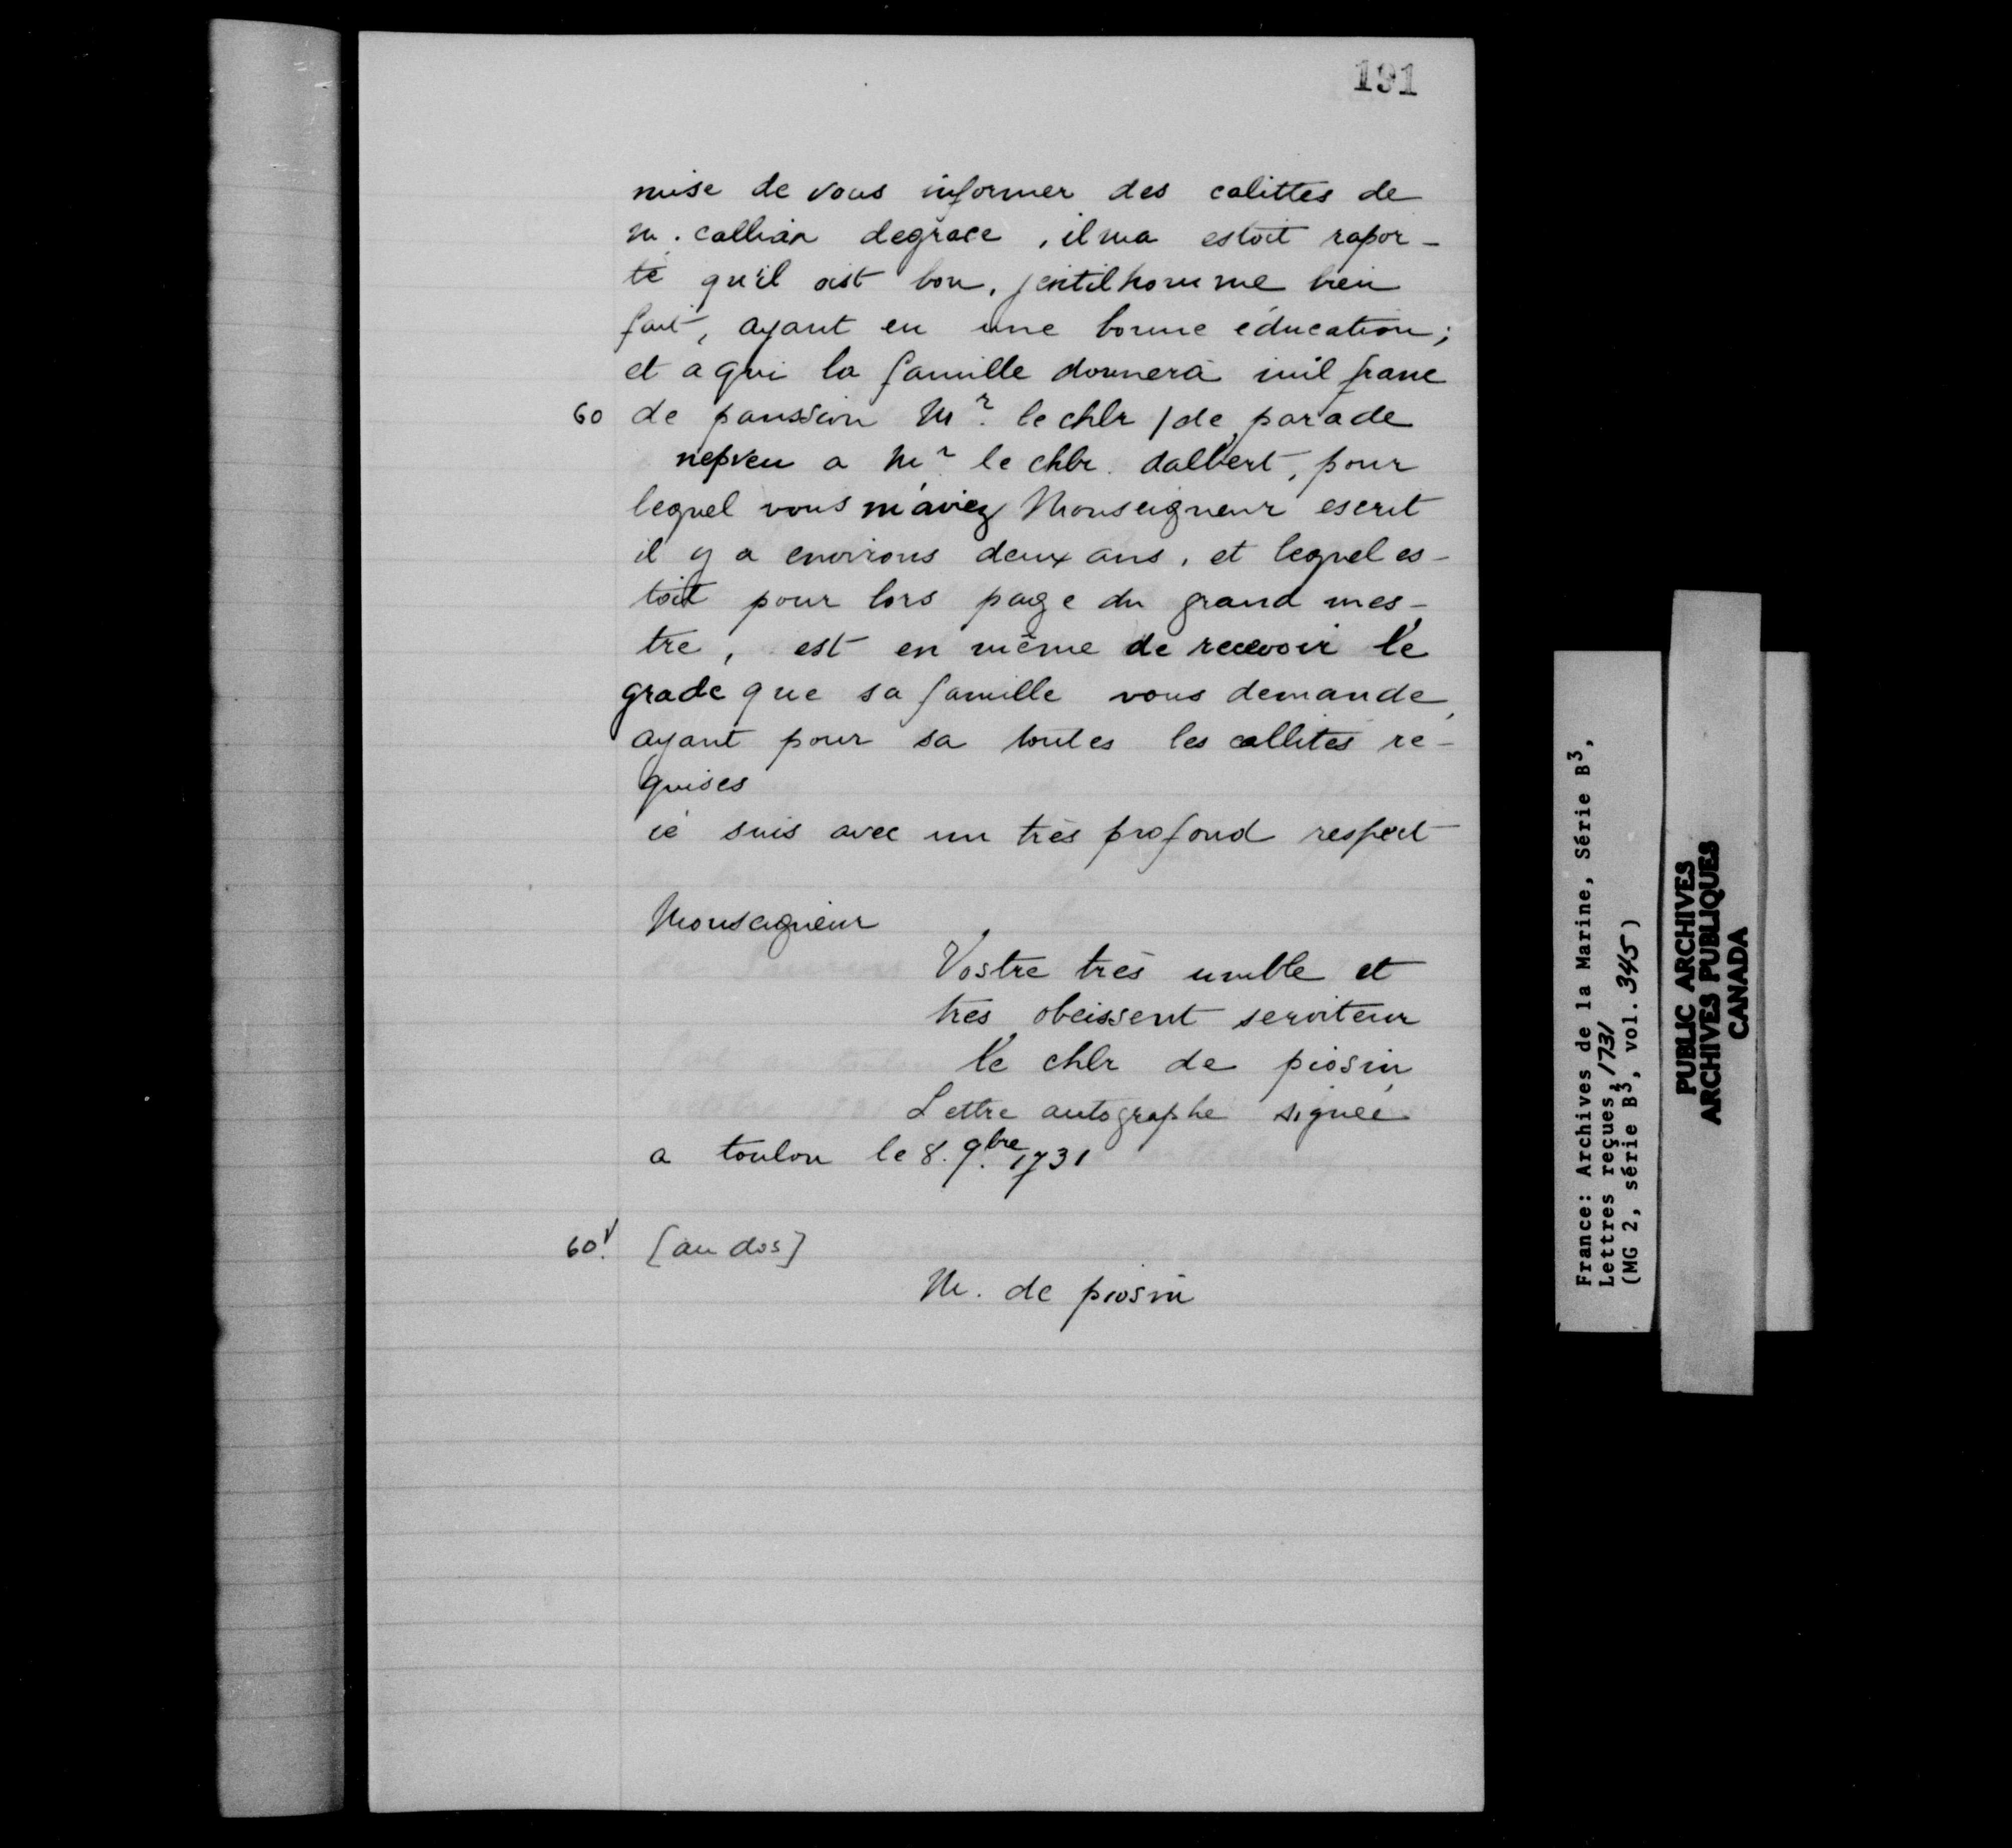 191
mise de vous informer des calittes de
m. callian degrace, il ma estoit rapor-
té qu'il aist bon, jentilhomme bien
fait, ayant eu une bonne éducation;
et a qui la famille donnera mil franc
60 de panssion Mr. le chlr / de parade
nepveu a Mr le chlr. dalbert, pour
lequel vous m'aviez Monseigneur escrit
il y a environs deux ans, et lequel es-
toit pour lors page du grand mes-
tre, est en même de recevoir le
grade que sa famille vous demande,
ayant pour sa toutes les callités re-
quises
ié suis avec un très profond respect
Monseigneur
Vostre très umble et
tres obeissent serviteur
le chlr de piosin
Lettre autographe signée
a toulon le 8. 9bre. 1731
60v. [au dos]
M. de piosin
France: Archives de la Marine, Série B3,
Lettres reçues, 1731
(MG 2, série B3, vol. 345)
PUBLIC ARCHIVES
ARCHIVES PUBLIQUES
CANADA